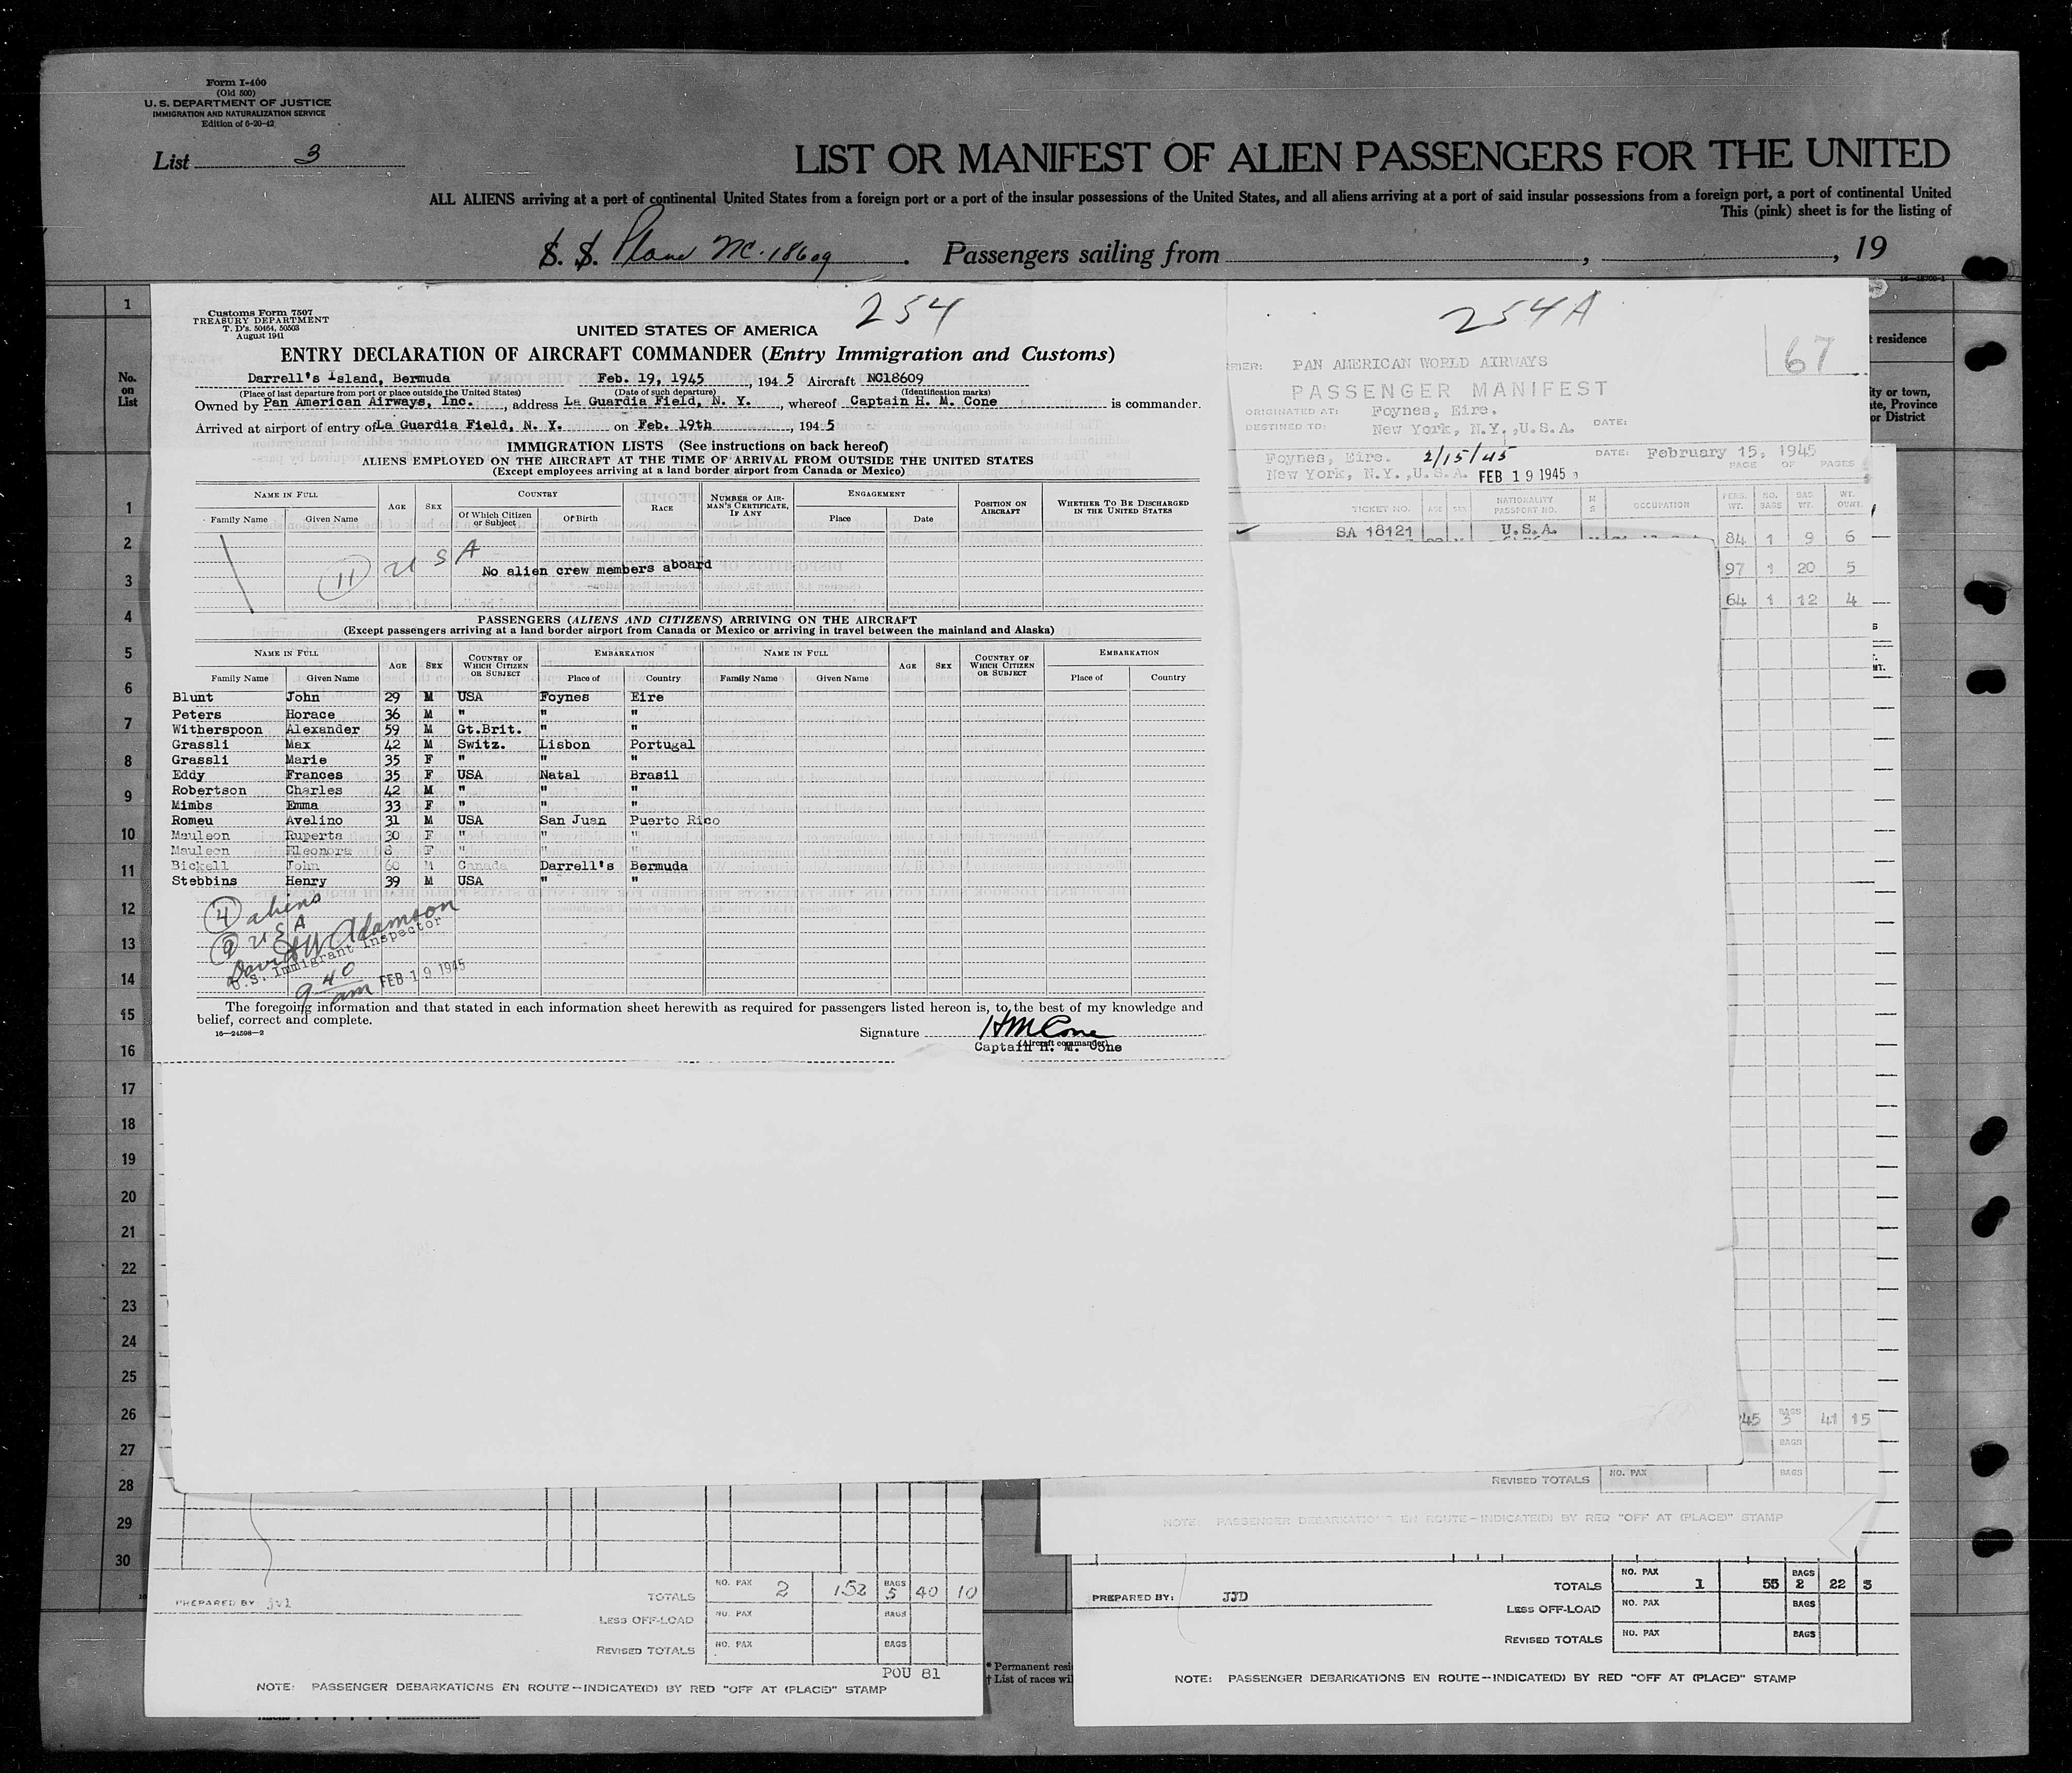 Form I-400
(Old 500)
U. S. DEPARTMENT OF JUSTICE
IMMIGRATION AND NATURALIZATION SERVICE
Edition of 6-20-42
List 3
LIST OR MANIFEST OF ALIEN PASSENGERS FOR THE UNITED
ALL ALIENS arriving at a port of continental United States from a foreign port or a port of the insular possessions of the United States, and all aliens arriving at a port of said insular possessions from a foreign port, a port of continental United
This (pink) sheet is for the listing of
S. S. Plane NC-18609. Passengers sailing from , , 19
Customs Form 7507
TREASURY DEPARTMENT
T. D's. 50464, 50503
August 1941
254
UNITED STATES OF AMERICA
ENTRY DECLARATION OF AIRCRAFT COMMANDER (Entry Immigration and Customs)
Darrell's Island, Bermuda Feb. 19, 1945, 194 5 Aircraft NC18609
(Place of last departure from port or place outside the United States) (Date of such departure) (Identification marks)
Owned by Pan American Airways, Inc., address La Guardia Field, N. Y., whereof Captain H. M. Cone is commander.
Arrived at airport of entry of La Guardia Field, N. Y. on Feb. 19th, 194 5
IMMIGRATION LISTS (See instructions on back hereof)
ALIENS EMPLOYED ON THE AIRCRAFT AT THE TIME OF ARRIVAL FROM OUTSIDE THE UNITED STATES
(Except employees arriving at a land border airport from Canada or Mexico)
NAME IN FULL AGE SEX COUNTRY RACE NUMBER OF AIRMAN'S CERTIFICATE, IF ANY ENGAGEMENT POSITION ON AIRCRAFT WHETHER TO BE DISCHARGED IN THE UNITED STATES
Family Name Given Name Of Which Citizen or Subject Of Birth Place Date
11 USA
No alien crew members aboard
PASSENGERS (ALIENS AND CITIZENS) ARRIVING ON THE AIRCRAFT
(Except passengers arriving at a land border airport from Canada or Mexico or arriving in travel between the mainland and Alaska)
NAME IN FULL AGE SEX COUNTRY OF WHICH CITIZEN OR SUBJECT EMBARKATION NAME IN FULL AGE SEX COUNTRY OF WHICH CITIZEN OR SUBJECT EMBARKATION
Family Name Given Name Place of Country Family Name Given Name Place of Country
Blunt John 29 M USA Foynes Eire
Peters Horace 36 M " " "
Witherspoon Alexander 59 M Gt.Brit. " "
Grassli Max 42 M Switz. Lisbon Portugal
Grassli Marie 35 F " " "
Eddy Frances 35 F USA Natal Brasil
Robertson Charles 42 M " " "
Mimbs Emma 33 F " " "
Romeu Avelino 31 M USA San Juan Puerto Rico
Mauleon Ruperta 30 F " " "
Mauleon Eleonora 8 F " " "
Bickell John 60 M Canada Darrell's Bermuda
Stebbins Henry 39 M USA " "
4 aliens
9 USA
David W Adamson
U.S. Immigrant Inspector
9 40 am FEB 19 1945
The foregoing information and that stated in each information sheet herewith as required for passengers listed hereon is, to the best of my knowledge and
belief, correct and complete.
16-24598-2
Signature HM Cone
(Aircraft commander)
Captain H. M. Cone
254A
67
RIER: PAN AMERICAN WORLD AIRWAYS
PASSENGER MANIFEST
ORIGINATED AT: Foynes, Eire.
DESTINED TO: New York, N.Y.,U.S.A. DATE:
Foynes, Eire. 2/15/45 DATE: February 15, 1945
New York, N.Y.,U.S.A. FEB 19 1945 PAGE OF PAGES
TICKET NO. AGE SEX NATIONALITY PASSPORT NO. M S OCCUPATION PERS. WT. NO. BAGS BAG WT. WT. OVWT.
SA 18121 U.S.A.
84 1 9 6
97 1 20 5
64 1 12 4
t residence
ity or town,
ate, Province
or District
No. on List
1
1
2
3
4
5
6
7
8
9
10
11
12
13
14
15
16
17
18
19
20
21
22
23
24
25
26
27
28
29
30
245 BAGS 3 41 15
BAGS
REVISED TOTALS NO. PAX BAGS
NOTE: PASSENGER DEBARKATIONS EN ROUTE-INDICATE(D) BY RED "OFF AT (PLACE)" STAMP
PREPARED BY jvl
TOTALS NO. PAX 2 152 BAGS 5 40 10
LESS OFF-LOAD NO. PAX BAGS
REVISED TOTALS NO. PAX BAGS
POU 81
NOTE: PASSENGER DEBARKATIONS EN ROUTE-INDICATE(D) BY RED "OFF AT (PLACE)" STAMP
* Permanent resi
† List of races wi
PREPARED BY: JJD
TOTALS NO. PAX 1 55 BAGS 2 22 3
LESS OFF-LOAD NO. PAX BAGS
REVISED TOTALS NO. PAX BAGS
NOTE: PASSENGER DEBARKATIONS EN ROUTE-INDICATE(D) BY RED "OFF AT (PLACE)" STAMP